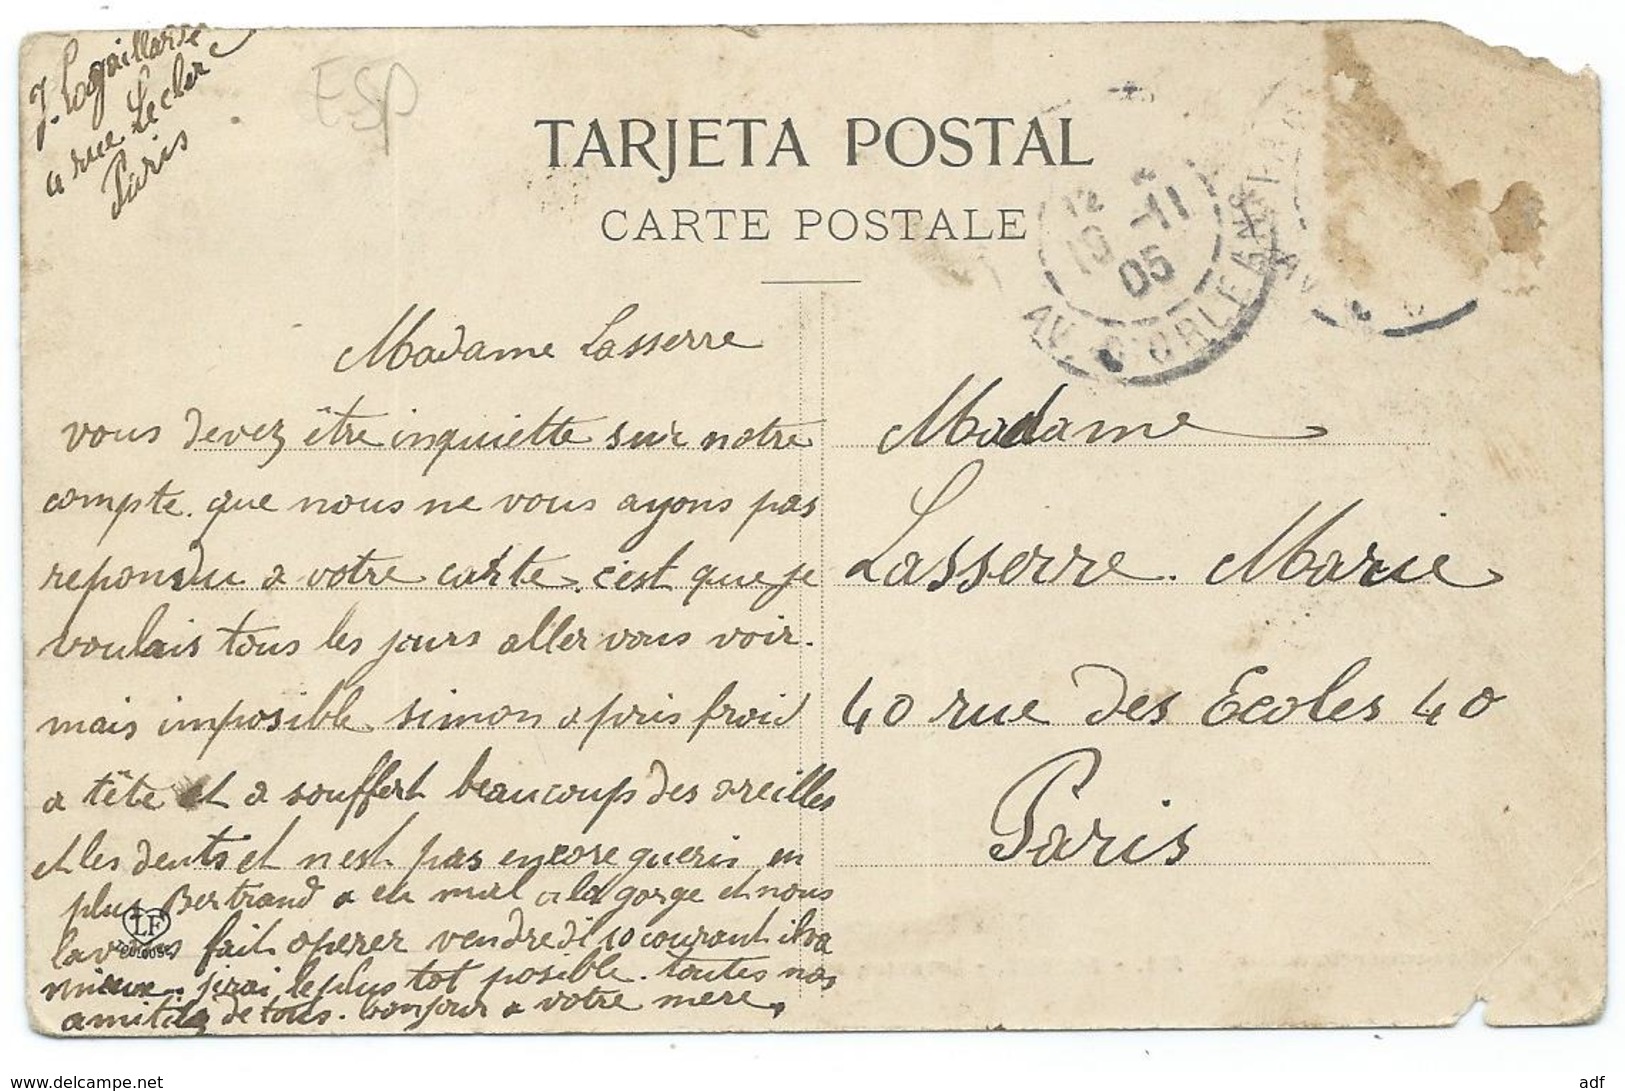 J. Logaillarde
4 rue Leclerc
Paris
ESP
TARJETA POSTAL
CARTE POSTALE
12
19 -11
05
AV. D'ORLEANS
Madame Lasserre
vous devez être inquiette sur notre
compte. que nous ne vous ayons pas
repondu a votre carte. c'est que je
voulais tous les jours aller vous voir.
mais imposible simon a pris froid
a tête et a souffert beaucoup des oreilles
et les dents et n'est pas encore gueris en
plus Bertrand a eu mal a la gorge et nous
lavons fait operer vendredi 10 courant il va
mieux. j'irai le plus tot posible. toutes nos
amitiés de tous. bonjour a votre mere.
LF
TOULOUSE
Madame
Lasserre. Marie
40 rue des Ecoles 40
Paris
www.delcampe.net
adf